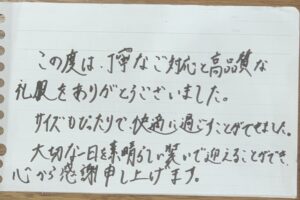 この度は、丁寧なご対応と高品質な
礼服をありがとうございました。
サイズもぴったりで、快適に過ごすことができました。
大切な一日を素晴らしい装いで迎えることができ、
心から感謝申し上げます。